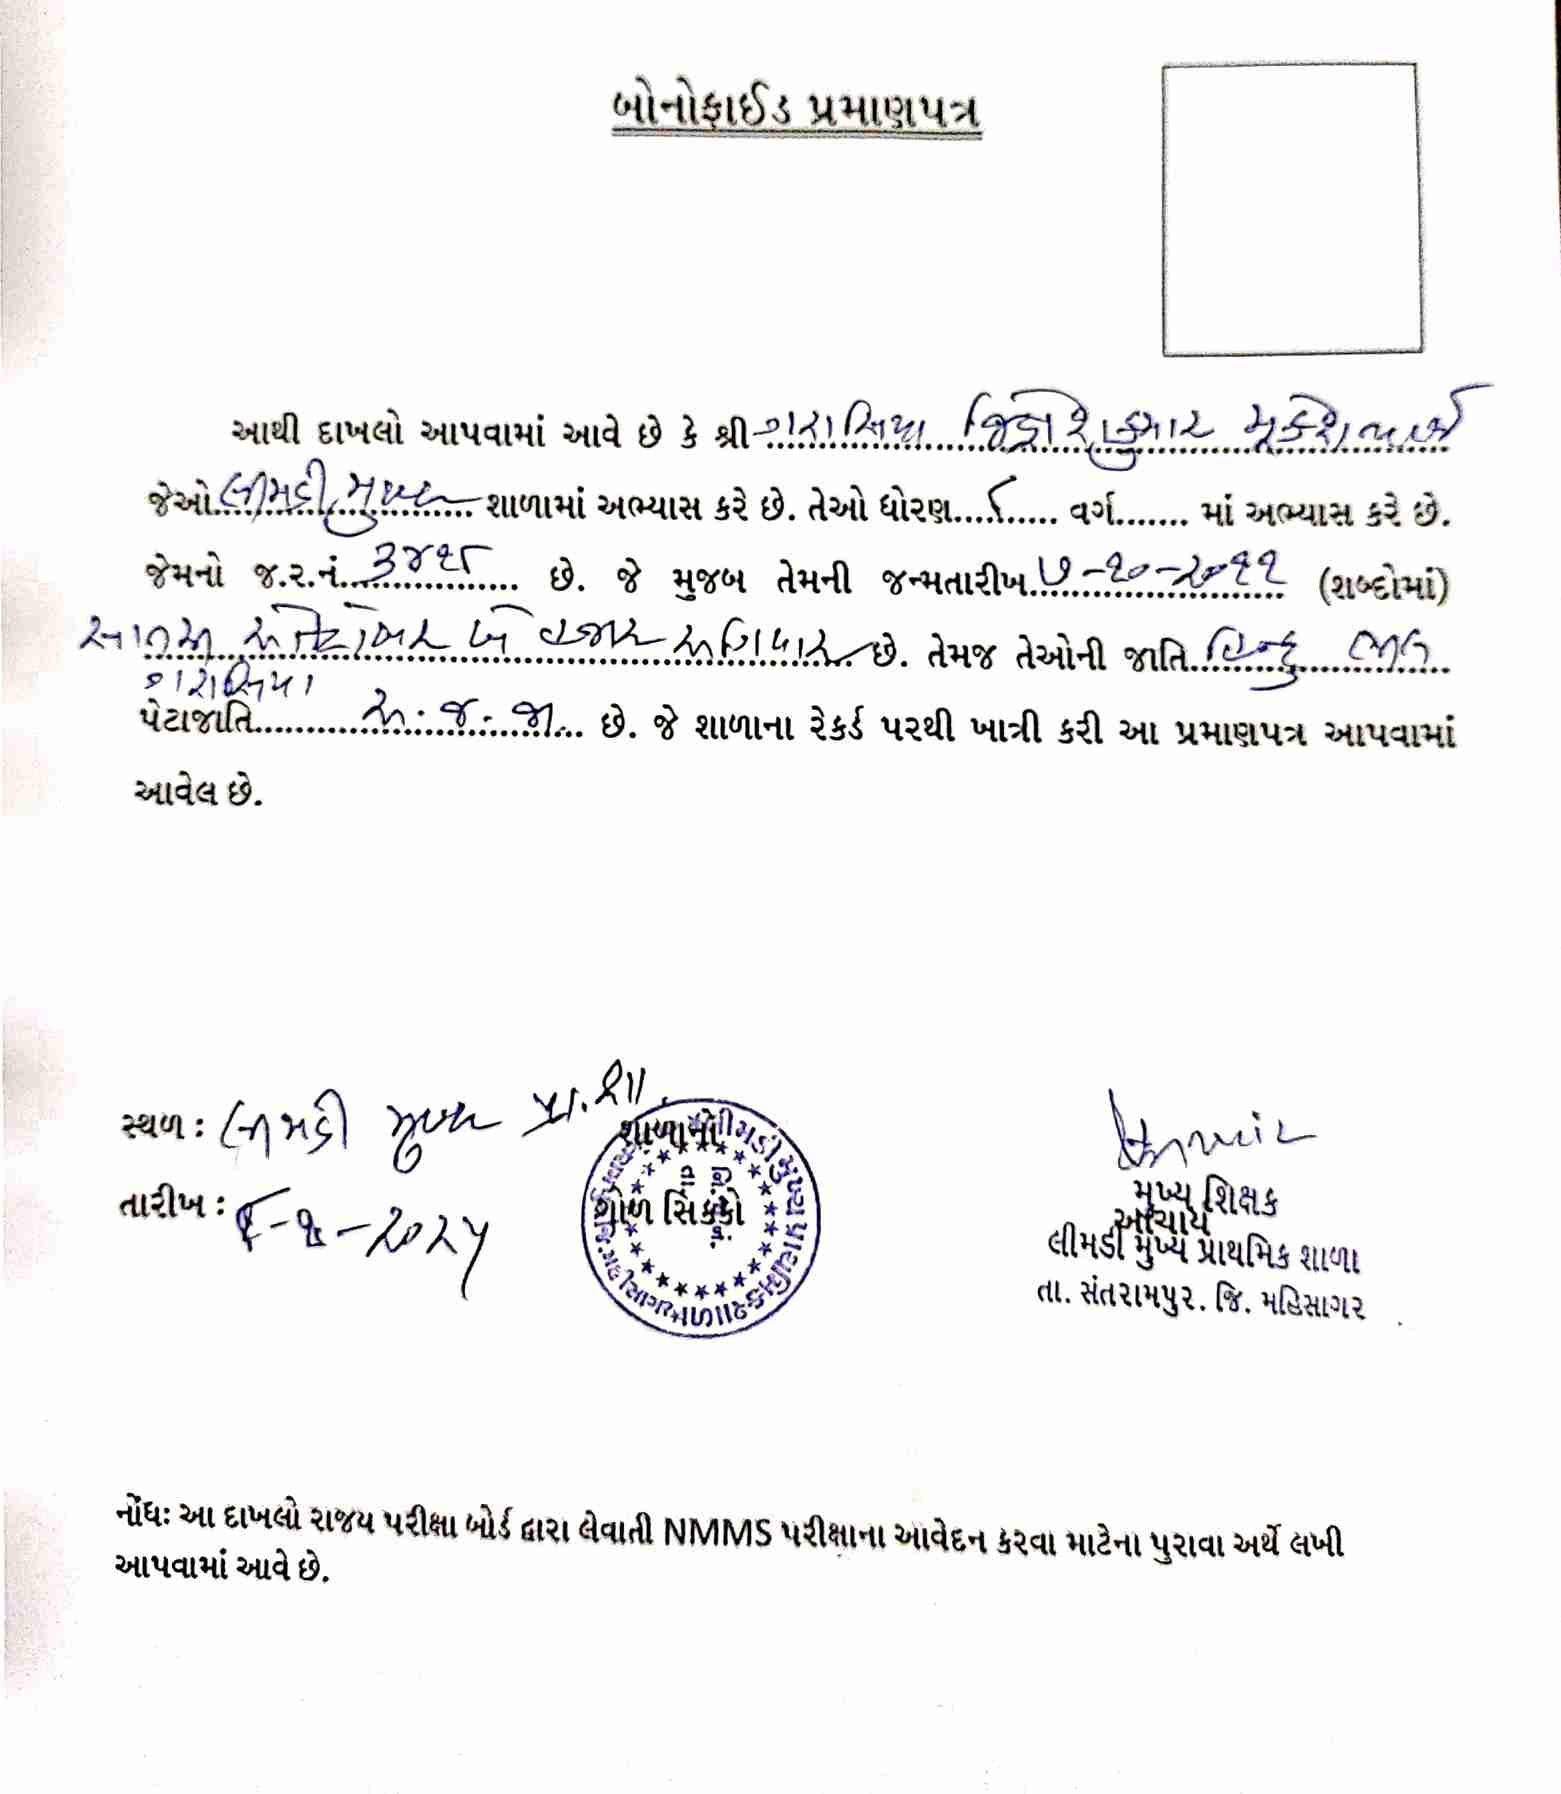 બોનોફાઈડ પ્રમાણપત્ર
આથી દાખલો આપવામાં આવે છે કે શ્રી ગરાસિયા જિજ્ઞેશકુમાર મૂકેશભાઈ
જેઓ લીમડી મુખ્ય શાળામાં અભ્યાસ કરે છે. તેઓ ધોરણ....૮...... વર્ગ....... માં અભ્યાસ કરે છે.
જેમનો જ.ર.નં... ૩૪૧૮ ............ છે. જે મુજબ તેમની જન્મતારીખ ૭-૧૦-૨૦૧૧ (શબ્દોમાં)
સાતમી ઓક્ટોબર બે હજાર અગિયાર છે. તેમજ તેઓની જાતિ...હિન્દુ ભીલ
ગરાસિયા
પેટાજાતિ............ અ.જ.જા... છે. જે શાળાના રેકર્ડ પરથી ખાત્રી કરી આ પ્રમાણપત્ર આપવામાં
આવેલ છે.
સ્થળ: લીમડી મુખ્ય પ્રા.શા.
તારીખ: ૮-૧-૨૦૨૫
શાળાનો
ગોળ સિક્કો
લીમડી મુખ્ય પ્રાથમિક શાળા
મુખ્ય શિક્ષક
આચાર્ય
લીમડી મુખ્ય પ્રાથમિક શાળા
તા. સંતરામપુર. જિ. મહિસાગર
નોંધઃ આ દાખલો રાજ્ય પરીક્ષા બોર્ડ દ્વારા લેવાતી NMMS પરીક્ષાના આવેદન કરવા માટેના પુરાવા અર્થે લખી
આપવામાં આવે છે.